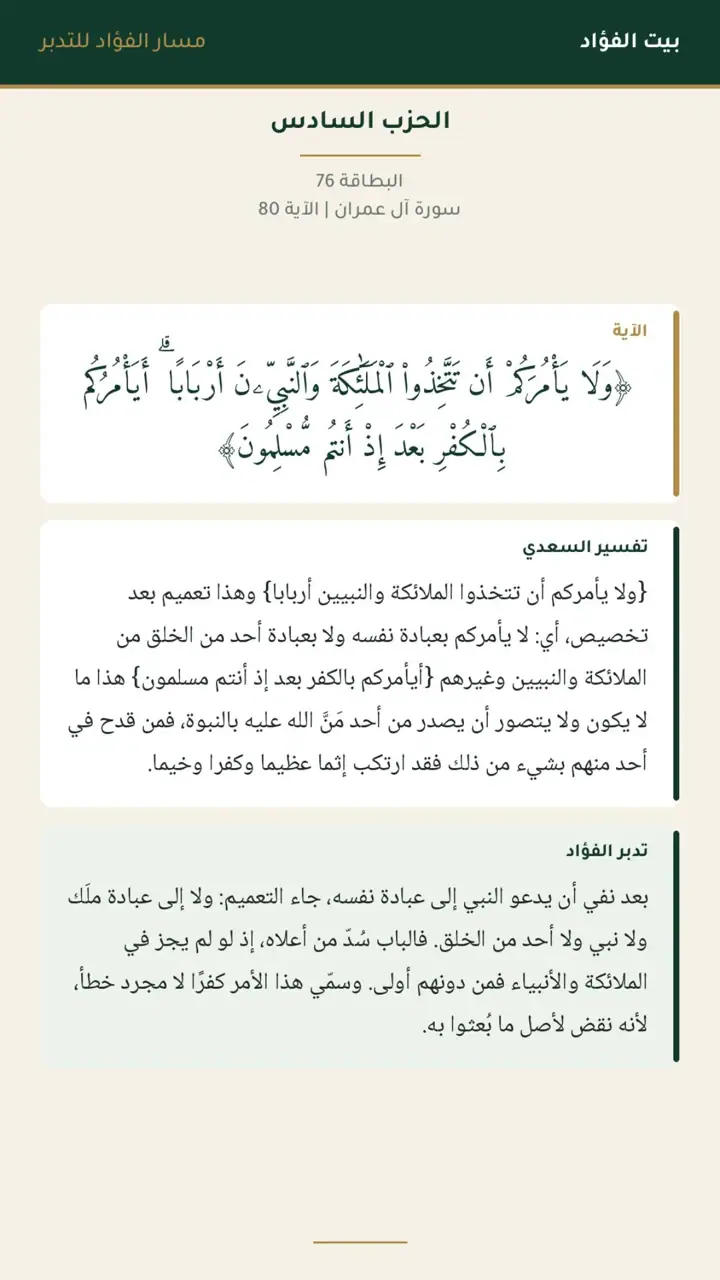 بيت الفؤاد
مسار الفؤاد للتدبر
الحزب السادس
البطاقة 76
سورة آل عمران | الآية 80
الآية
﴿وَلَا يَأْمُرَكُمْ أَن تَتَّخِذُوا۟ ٱلْمَلَـٰٓئِكَةَ وَٱلنَّبِيِّـۧنَ أَرْبَابًا ۗ أَيَأْمُرُكُم
بِٱلْكُفْرِ بَعْدَ إِذْ أَنتُم مُّسْلِمُونَ﴾
تفسير السعدي
{ولا يأمركم أن تتخذوا الملائكة والنبيين أربابا} وهذا تعميم بعد
تخصيص، أي: لا يأمركم بعبادة نفسه ولا بعبادة أحد من الخلق من
الملائكة والنبيين وغيرهم {أيأمركم بالكفر بعد إذ أنتم مسلمون} هذا ما
لا يكون ولا يتصور أن يصدر من أحد مَنَّ الله عليه بالنبوة، فمن قدح في
أحد منهم بشيء من ذلك فقد ارتكب إثما عظيما وكفرا وخيما.
تدبر الفؤاد
بعد نفي أن يدعو النبي إلى عبادة نفسه، جاء التعميم: ولا إلى عبادة ملَك
ولا نبي ولا أحد من الخلق. فالباب سُدّ من أعلاه، إذ لو لم يجز في
الملائكة والأنبياء فمن دونهم أولى. وسمّي هذا الأمر كفرًا لا مجرد خطأ،
لأنه نقض لأصل ما بُعثوا به.